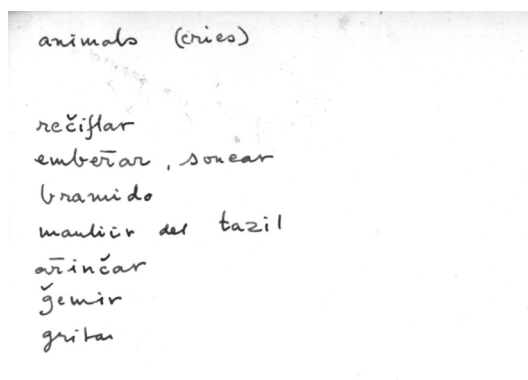 animals (cries)
rečiflar
embeřar, sonear
bramido
mauliir del tazil
ařinčar
ǧemir
gritar